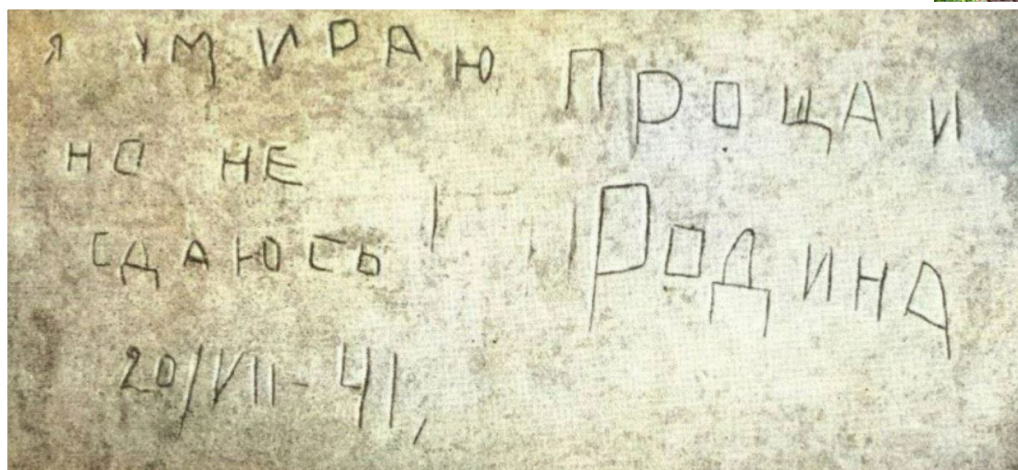 Я УМИРАЮ
НО НЕ
СДАЮСЬ
ПРОЩАИ
РОДИНА
20/VII-41,